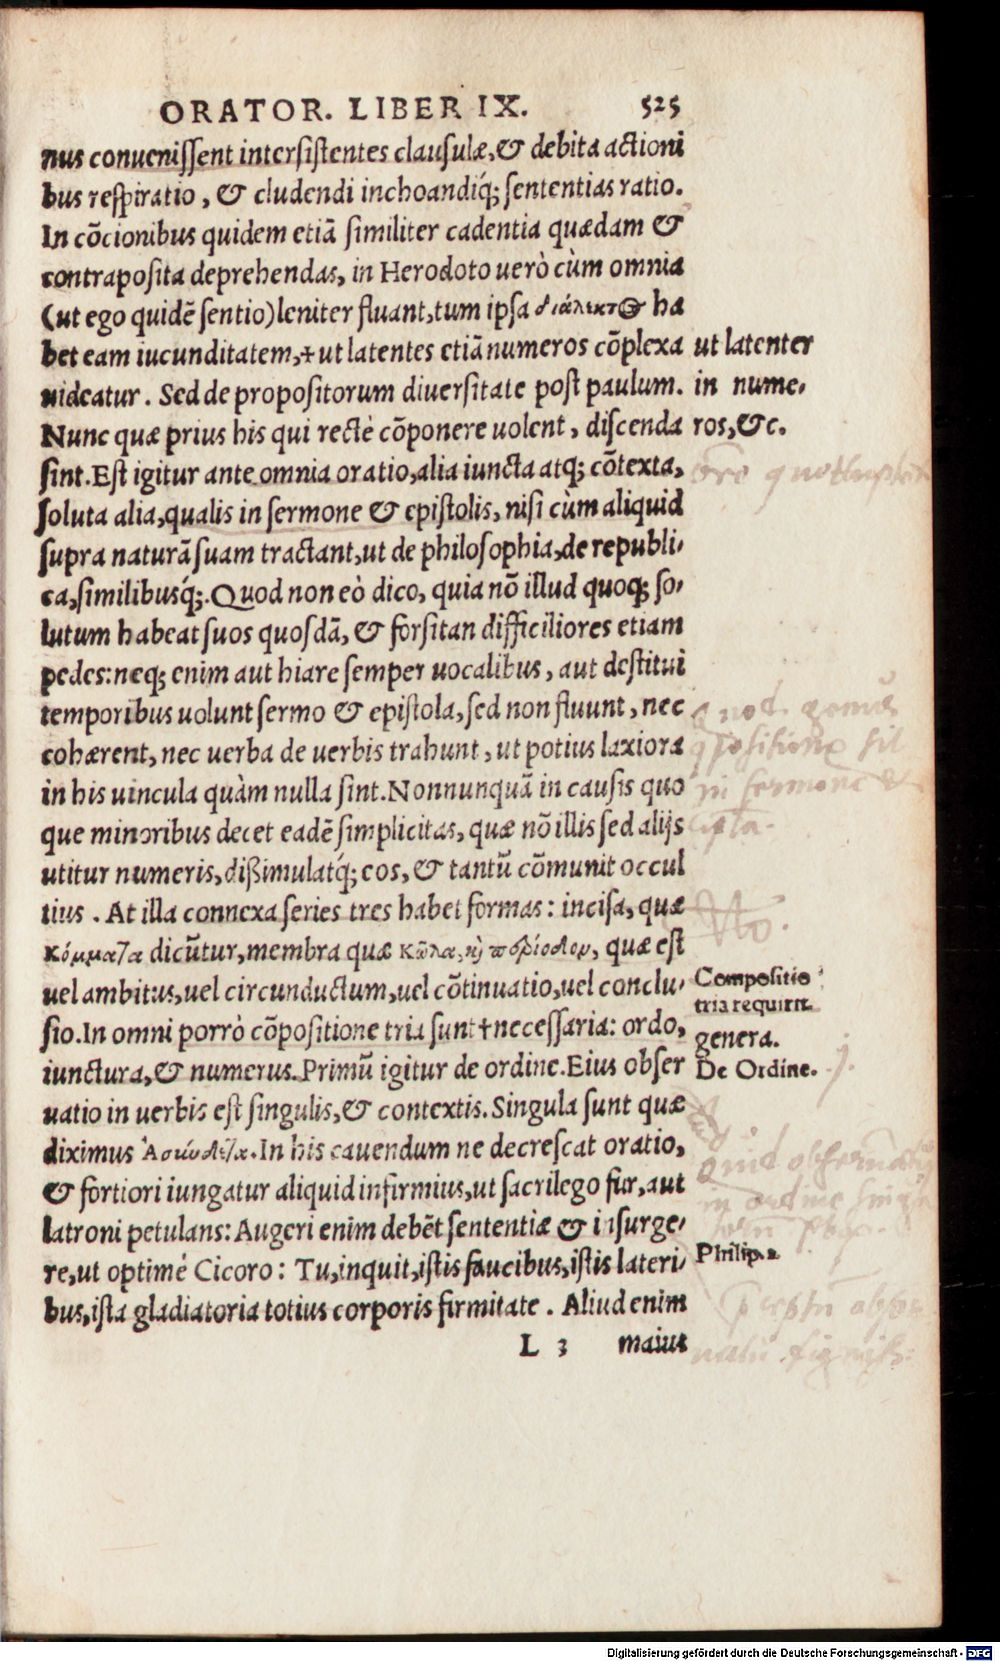 ORATOR. LIBER IX. 525
nus conuenissent intersistentes clausulæ, & debita actioni
bus respiratio, & cludendi inchoandiq́; sententias ratio.
In cõcionibus quidem etiã similiter cadentia quædam &
contraposita deprehendas, in Herodoto uerò cùm omnia
(ut ego quidẽ sentio) leniter fluant, tum ipsa διάλεκτος ha
bet eam iucunditatem, + ut latentes etiã numeros cõplexa
ut latenter
uideatur. Sed de propositorum diuersitate post paulum.
in nume-
Nunc quæ prius his qui rectè cõponere uolent, discenda
ros, &c.
sint. Est igitur ante omnia oratio, alia iuncta atq; cõtexta,
soluta alia, qualis in sermone & epistolis, nisi cùm aliquid
supra naturã suam tractant, ut de philosophia, de republi-
ca, similibusq́;. Quod non eò dico, quia nõ illud quoq; so-
lutum habeat suos quosdã, & forsitan difficiliores etiam
pedes: neq; enim aut hiare semper uocalibus, aut destitui
temporibus uolunt sermo & epistola, sed non fluunt, nec
quod genus
cohærent, nec uerba de uerbis trahunt, ut potius laxiora
in his uincula quàm nulla sint. Nonnunquã in causis quo
in sermone &
que minoribus decet eadẽ simplicitas, quæ nõ illis sed alijs
utitur numeris, dißimulatq́; eos, & tantũ cõmunit occul
tius. At illa connexa series tres habet formas: incisa, quæ
κόμματα dicũtur, membra quæ κῶλα, καὶ περίοδον, quæ est
uel ambitus, uel circunductum, uel cõtinuatio, uel conclu-
Compositio
tria requirit
sio. In omni porrò cõpositione tria sunt † necessaria: ordo,
genera.
iunctura, & numerus. Primũ igitur de ordine. Eius obser
De Ordine.
uatio in uerbis est singulis, & contextis. Singula sunt quæ
diximus Ἀσύνδετα. In his cauendum ne decrescat oratio,
& fortiori iungatur aliquid infirmius, ut sacrilego fur, aut
latroni petulans: Augeri enim debẽt sententiæ & insurge-
re, ut optimé Cicoro: Tu, inquit, istis faucibus, istis lateri-
Philip. 2.
bus, ista gladiatoria totius corporis firmitate. Aliud enim
L 3 maius
Digitalisierung gefördert durch die Deutsche Forschungsgemeinschaft - DFG